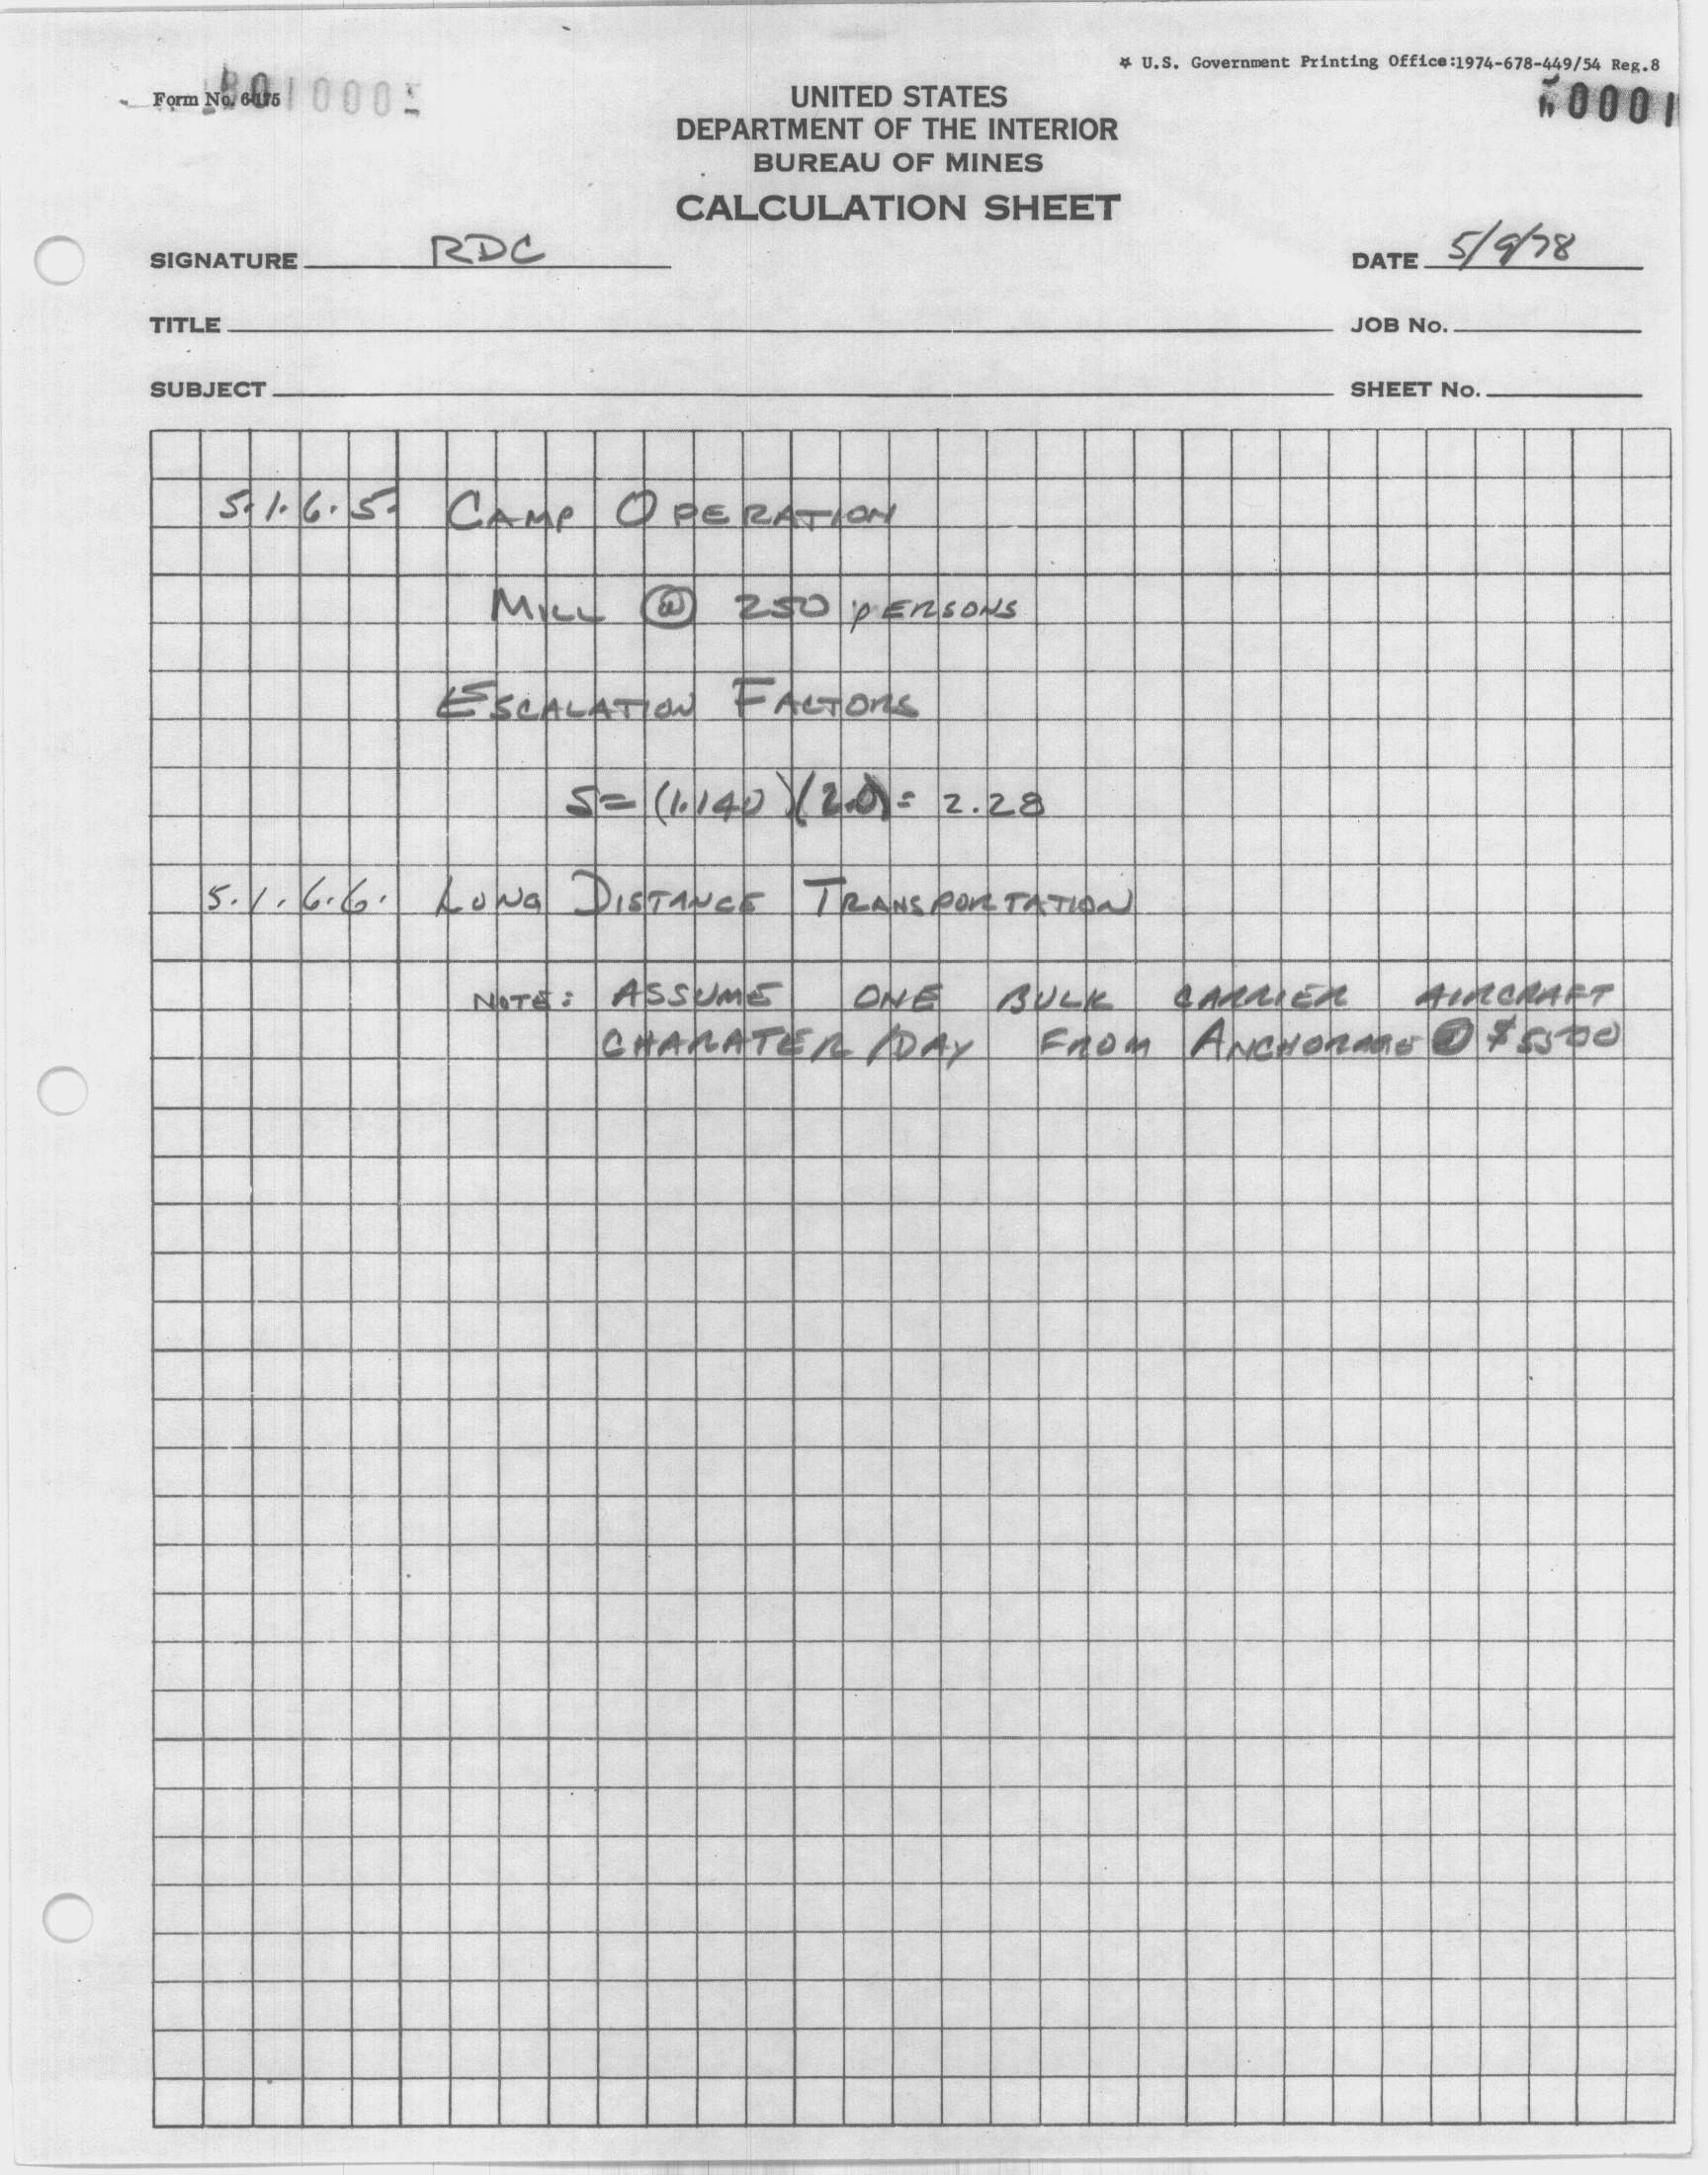 ☆ U.S. Government Printing Office:1974-678-449/54 Reg.8
Form No. 6-175
0001
UNITED STATES
DEPARTMENT OF THE INTERIOR
BUREAU OF MINES
CALCULATION SHEET
SIGNATURE RDC DATE 5/9/78
TITLE JOB No.
SUBJECT SHEET No.
5.1.6.5. CAMP OPERATION
MILL @ 250 PERSONS
ESCALATION FACTORS
S= (1.140)(2.0)= 2.28
5.1.6.6. LONG DISTANCE TRANSPORTATION
NOTE: ASSUME ONE BULK CARRIER AIRCRAFT
CHARATER/DAY FROM ANCHORAGE @ $5500